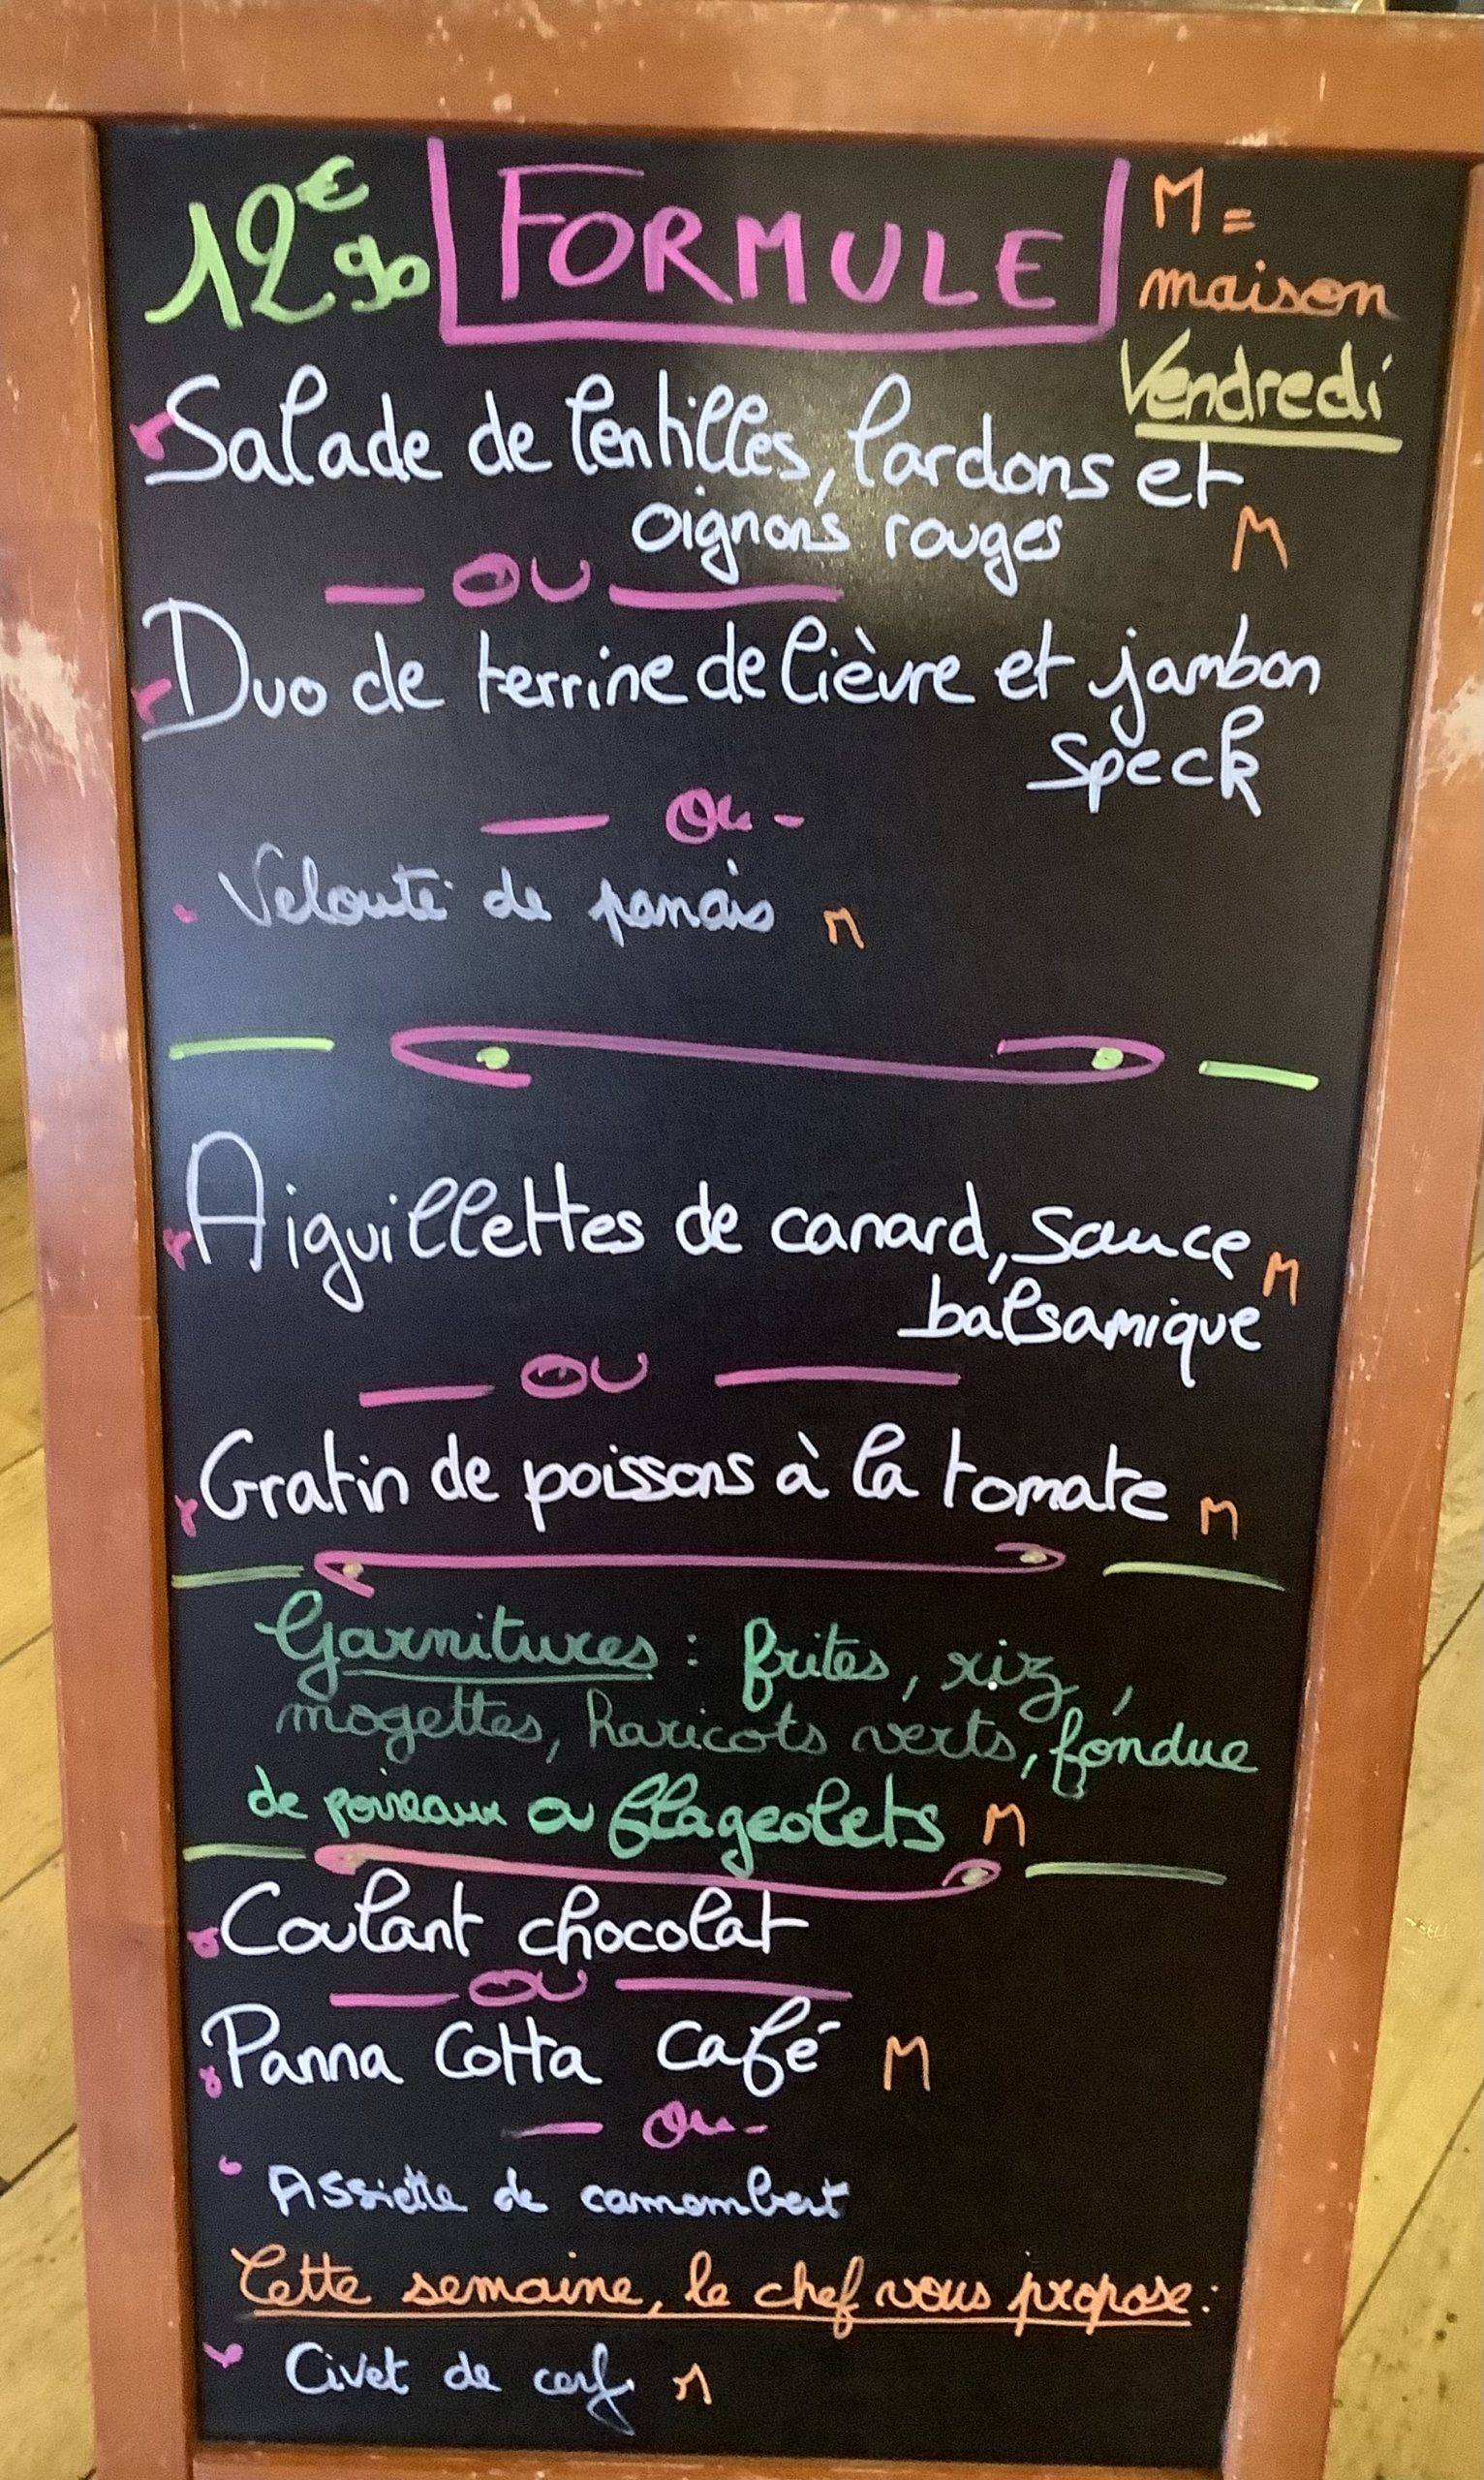 12€90 FORMULE M =
maison
Vendredi
Salade de lentilles, lardons et
oignons rouges M
OU
Duo de terrine de lièvre et jambon
speck
Ou
Velouté de panais M
Aiguillettes de canard, sauce M
balsamique
OU
Gratin de poissons à la tomate M
Garnitures : frites, riz,
mogettes, haricots verts, fondue
de poireaux ou flageolets M
Coulant chocolat
OU
Panna Cotta café M
Ou
Assiette de camembert
Cette semaine, le chef vous propose :
Civet de cerf M